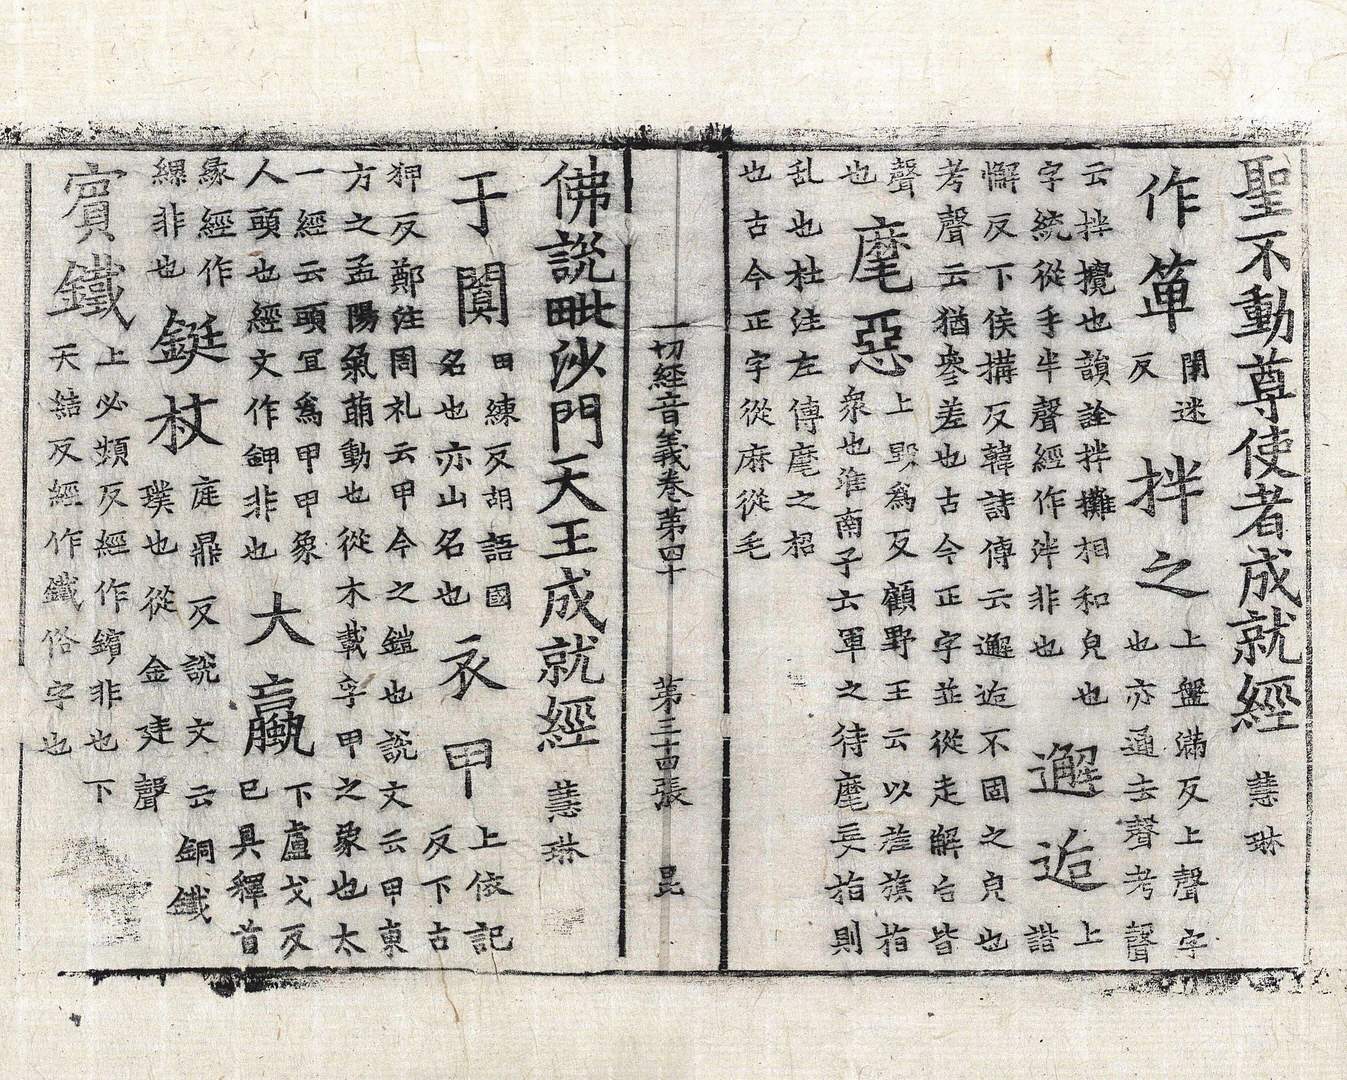 聖不動尊使者成就經 慧琳
作簞 閨迷反 拌之 上盤滿反上聲字也亦通去聲考聲
云拌攪也韻詮拌攤相和皃也字統從手半聲經作泮非也 邂逅 上諧
懈反下侯搆反韓詩傳云邂逅不固之皃也考聲云猶參差也古今正字並從走解后皆
聲也 麾惡 上毀爲反顧野王云以旌旗指衆也淮南子六軍之待麾妄指則
乱也杜注左傳麾之招也古今正字從麻從毛
一切經音義卷第四十 第三十四張 昆
佛說毗沙門天王成就經 慧琳
于闐 田練反胡語國名也亦山名也 衣甲 上依記反下古
狎反鄭注周礼云甲今之鎧也說文云甲東方之孟陽氣萌動也從木載孚甲之象也太
一經云頭冝爲甲甲象人頭也經文作鉀非也 大臝 下盧戈反已具釋首
緣經作縲非也 鋌杖 庭鼎反說文云銅鐵璞也從金廷聲
賓鐵 上必頻反經作鑌非也下天結反經作鐵俗字也